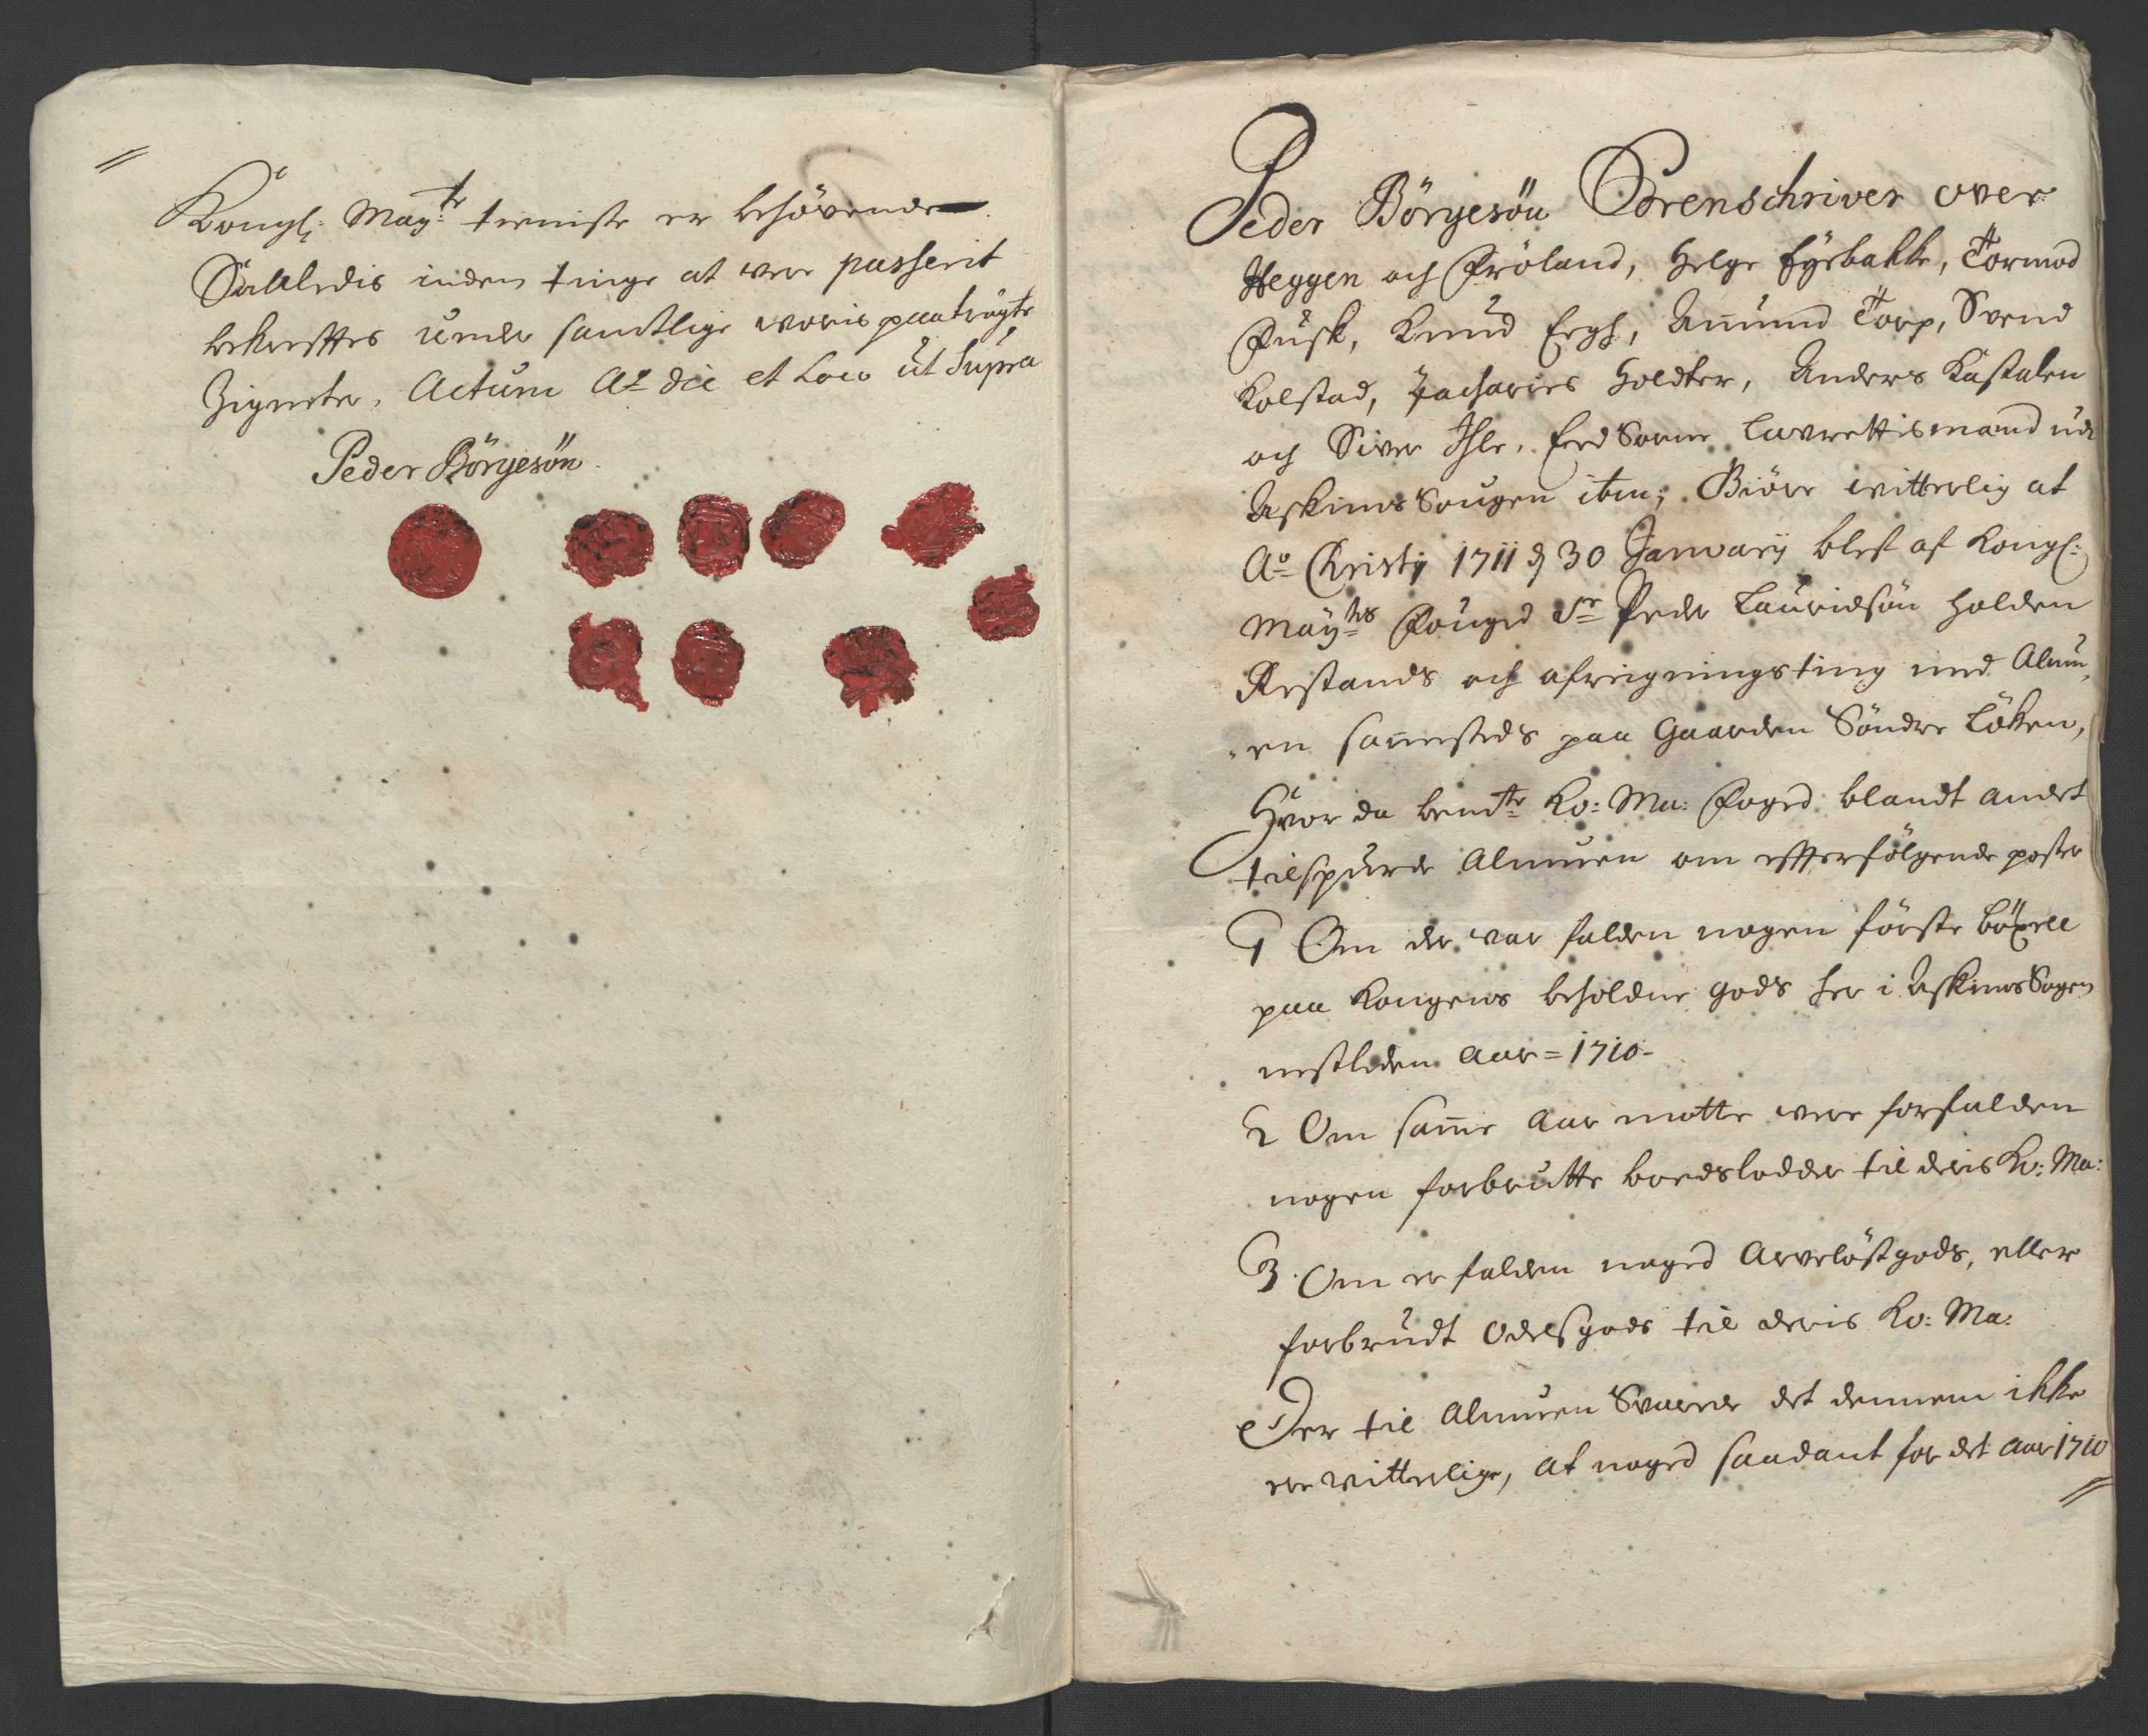 Kongl: May:ts tieniste er behövende
Saaledis inden tinge at vere passerit
bekrefftes under samtlige voris paatrögte
Zigneter, Actum Ao die et Loco ut Supra
Peder Börgesön
Peder Börgesön Sorenschriver over
Heggen och Fröland, Helge Eyebakke, Tormod
Fusk, Knud Ergh, Amund Torp, Svend
Kolstad, Zacharies Holdter, Anders Kastalen
och Siver Ihle, Eed Sorne Lavrettismand udi
Askims Sougen ibm; Giöre vitterlig at
Ao Christy 1711 d 30 Januarij blef af Kongl:
May:ts Fouged Sr Peder Lauridsön holden
Restands och afreigningsting med Almu,
en sammesteds paa Gaarden Söndre Löken,
Hvor da bemte Ko: Ma: Foged blandt andet
tilspurde Almuen om effterfölgende poster
1 Om der var falden nogen förste böxell
paa Kongens beholdne gods her i Askims Sogen
nestleden Aar = 1710 -
2 Om samme Aar motte vere forfalden
nogen forbrutte boedslodder til deris Ko: Ma:
3 Om er falden noged Arvelöstgods, eller
forbrudt Odelsgods til deris Ko: Ma:
Der til Almuen Svarede det dennem ikke
er vitterlige, at noged saadant for det Aar 1710